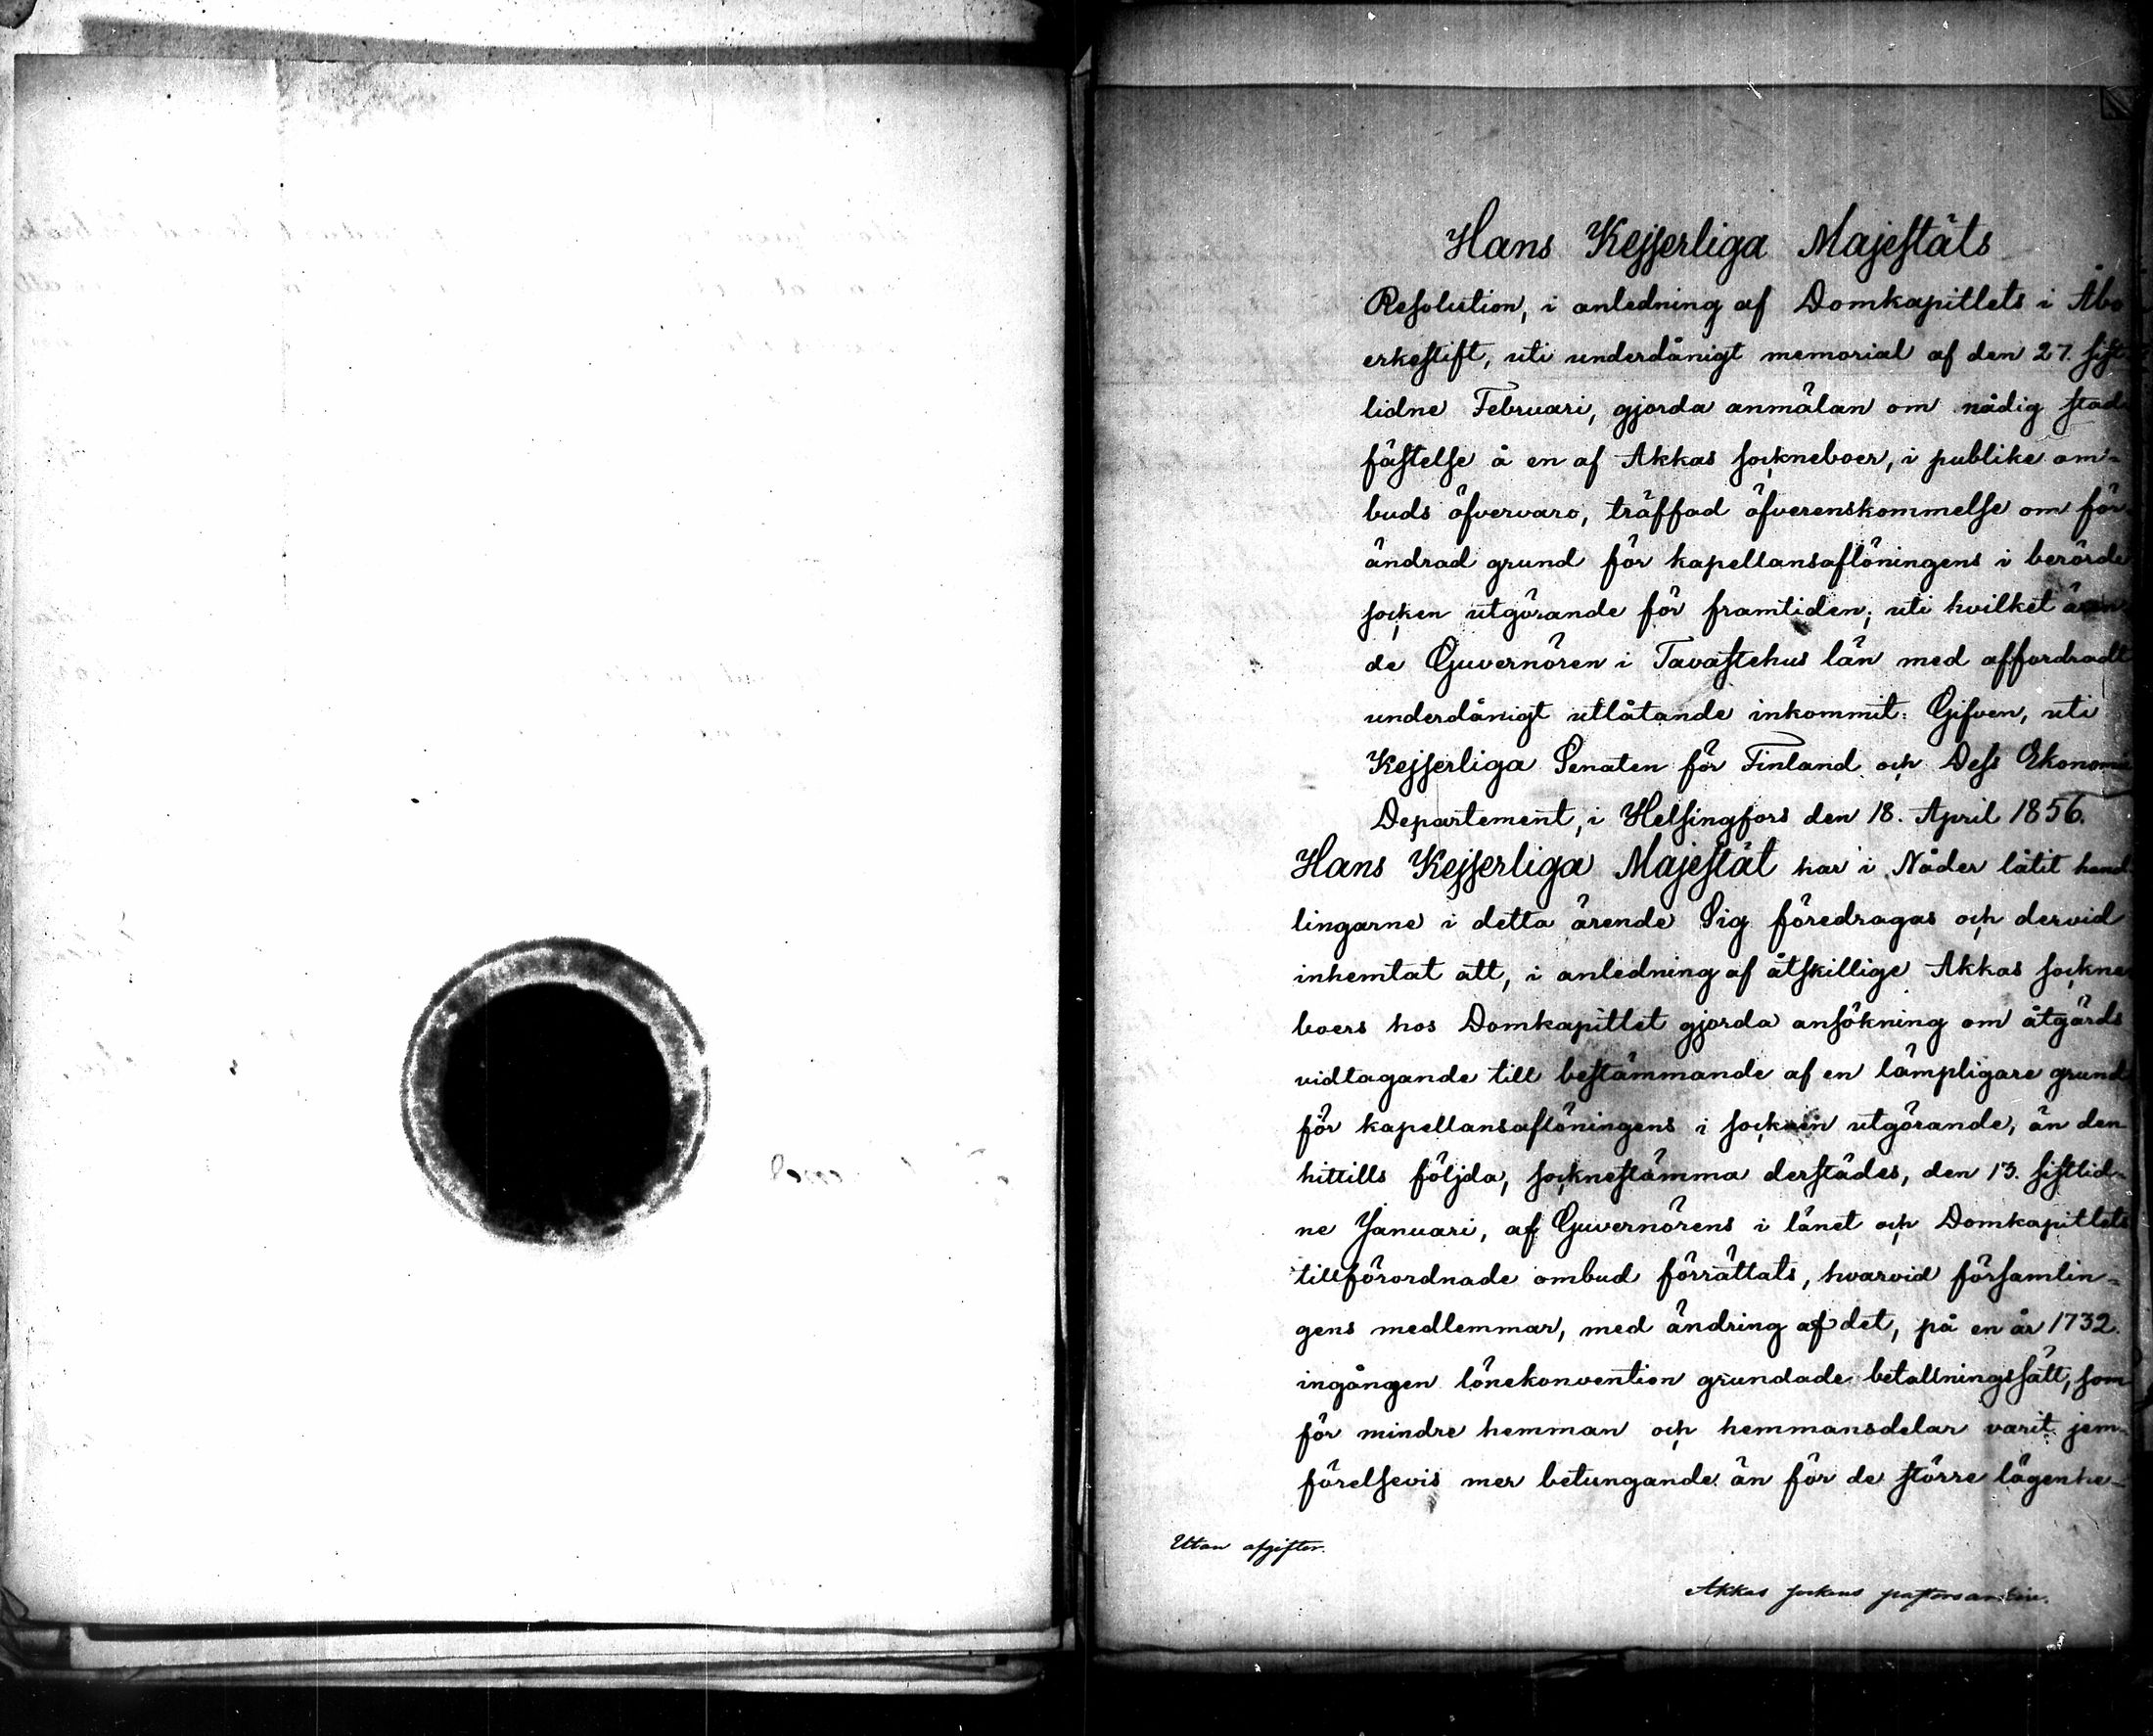 Hans Kejserliga Majestäts
Resolution, i anledning af Domkapitlets i Åbo
erkestift, uti underdånigt memorial af den 27. sist-
lidne Februari, gjorda anmälan om nådig stad-
fästelse å en af Akkas sockneboer, i publike om-
buds öfvervaro, träffad öfverenskommelse om för-
ändrad grund för kapellansaflöningens i berörde
socken utgörande för framtiden; uti hvilket ären-
de Guvernören i Tavastehus län med affordradt
underdånigt utlåtande inkommit: Gifven, uti
Kejserliga Senaten för Finland och Dess Ekonomie
Departement, i Helsingfors den 18. April 1856.
Hans Kejserliga Majestät har i Nåder låtit hand-
lingarne i detta ärende Sig föredragas och dervid
inhemtat att, i anledning af åtskillige Akkas sockne-
boers hos Domkapitlet gjorda ansökning om åtgärds
vidtagande till bestämmande af en lämpligare grund
för kapellansaflöningens i socknen utgörande, än den
hittills följda, socknestämma derstädes, den 13. sistlid-
ne Januari, af Guvernörens i länet och Domkapitlets
tillförordnade ombud förrättats, hvarvid församlin-
gens medlemmar, med ändring af det, på en år 1732.
ingången lönekonvention grundade betallningssätt, som
för mindre hemman och hemmansdelar varit jem-
förelsevis mer betungande än för de större lägenhe-
Utan afgifter.
Akkas sockens pastorsarkiv.